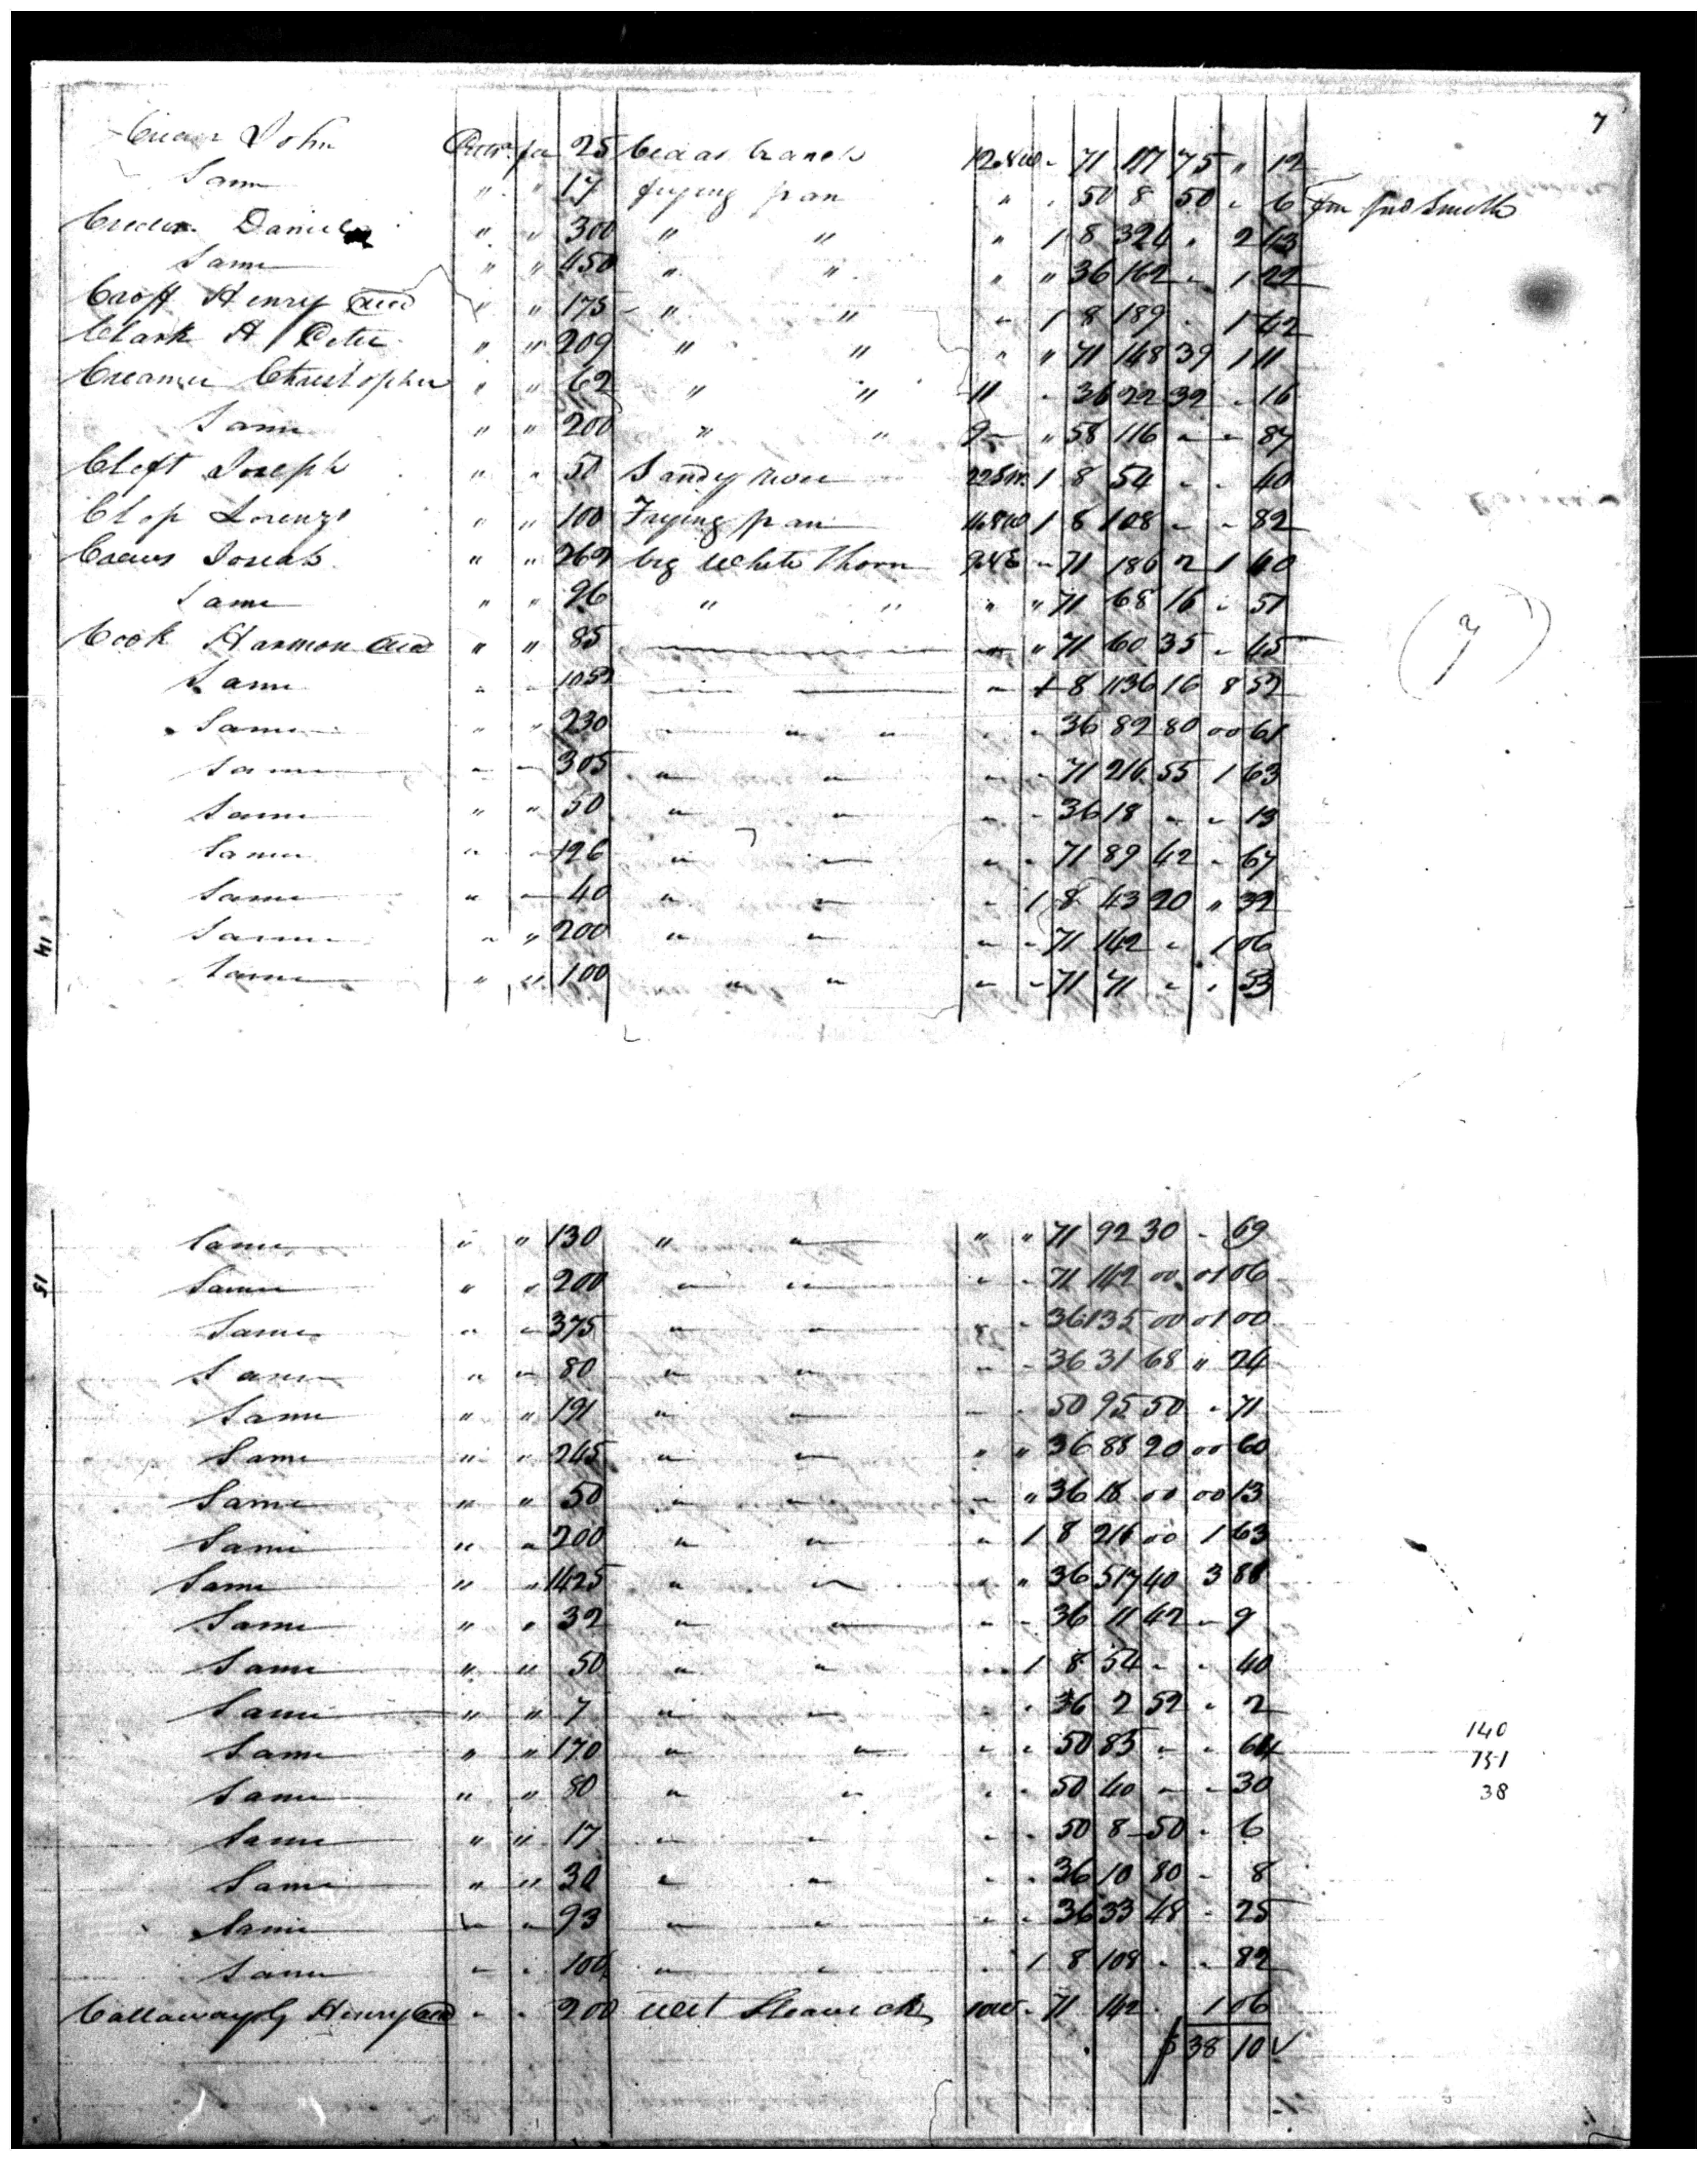 7
John 25 Cedar branch 12 SW " 71 17 75 " 12
Same " " 17 frying pan " " 50 8 50 " 6 fm Jno Smith
Daniel " " 300 " " " 1 8 324 " 2 43
Same " " 450 " " " " 36 162 " 1 22
Croff Henry " " 175 " " " 1 8 189 " 1 42
Clark A Peter " " 209 " " " " 71 148 39 1 11
Creamer Christopher " " 62 " " 11 " 36 22 32 " 16
Same " " 200 " " 9 " 58 116 " " 87
Cloft Joseph " " 50 Sandy River 22 SW 1 8 54 " " 40
Clop Lorenzo " " 100 Frying pan 16 SW 1 8 108 " " 82
Josiah " " 262 big White Thorn " 71 186 2 1 40
Same " " 96 " " " " 71 68 16 " 51
Cook Harmon " " 85 " " 71 60 35 " 45
Same " " 1052 " 1 8 1136 16 8 52
Same " " 230 " " " " " 36 82 80 00 61
Same " " 305 " " " " 71 216 55 1 63
Same " " 50 " " " " 36 18 " " 13
Same " " 126 " " " " 71 89 42 " 67
Same " " 40 " " " 1 8 43 20 " 32
14 Same " " 200 " " " " 71 142 " 1 06
Same " " 100 " " " " 71 71 " " 53
Same " " 130 " " " " 71 92 30 " 69
15 Same " " 200 " " " " 71 142 00 01 06
Same " " 375 " " " 36 135 00 01 00
Same " " 80 " " " " 36 31 68 " 24
Same " " 191 " " " " 50 95 50 " 71
Same " " 245 " " " " 36 88 20 00 60
Same " " 50 " " " " 36 18 00 00 13
Same " " 200 " " " 1 8 216 00 1 63
Same " " 1425 " " " " 36 517 40 3 88
Same " " 32 " " " " 36 11 42 " 9
Same " " 50 " " " 1 8 54 " " 40
Same " " 7 " " " " 36 2 52 " 2
Same " " 170 " " " " 50 85 " " 64 140
Same " " 80 " " " " 50 40 " " 30 38
Same " " 17 " " " " 50 8 50 " 6
Same " " 30 " " " " 36 10 80 " 8
Same " " 93 " " " " 36 33 48 " 25
Same " " 100 " " " 1 8 108 " " 82
Callaway G Henry " " 200 10 W " 71 142 " 1 06
$ 38 10 ✓